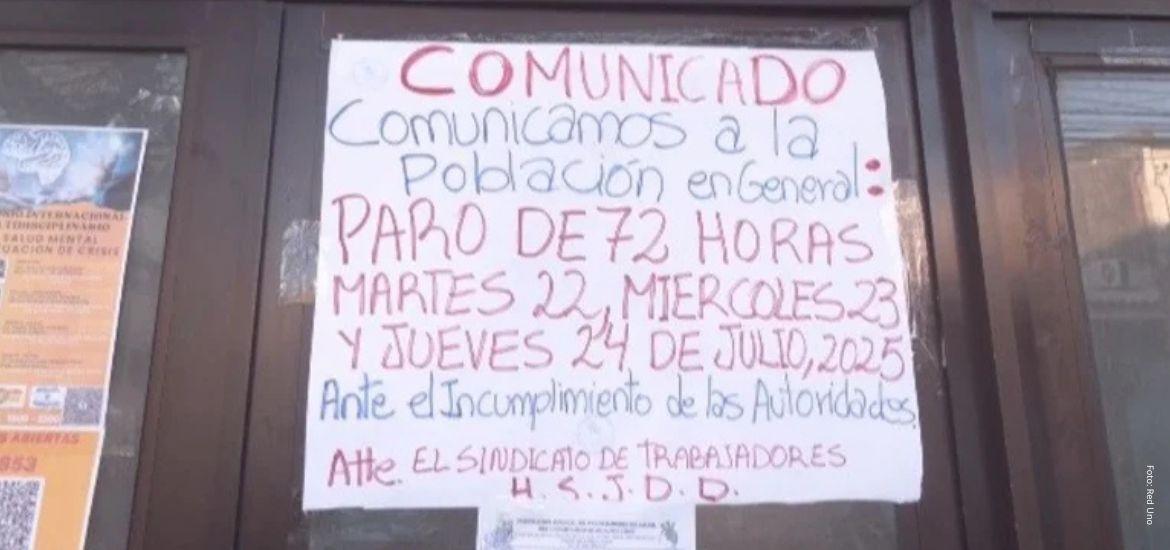 COMUNICADO
Comunicamos a la
Población en General:
PARO DE 72 HORAS
MARTES 22, MIERCOLES 23
Y JUEVES 24 DE JULIO, 2025
Ante el Incumplimiento de las Autoridades.
Atte. EL SINDICATO DE TRABAJADORES
H. S. J. D. D.
INTERNACIONAL
SALUD MENTAL
DE CRISIS
ABIERTAS
853
Foto: Red Uno